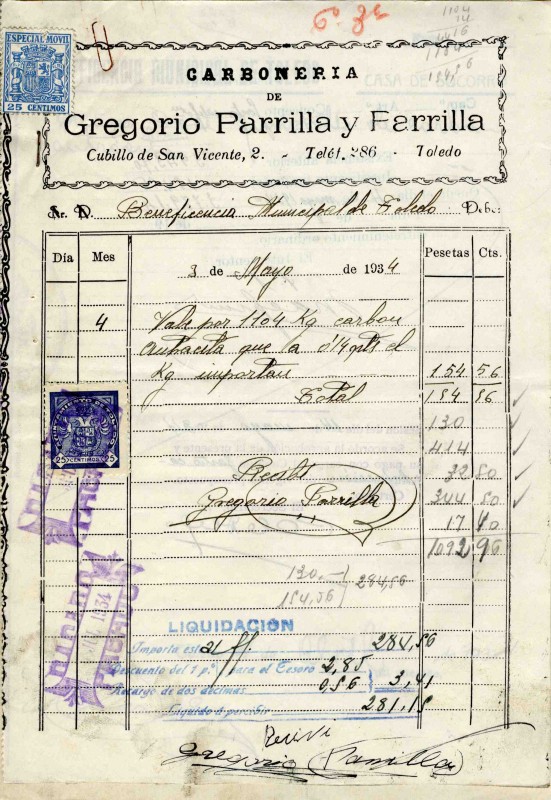 6º 3º
1104
14
4416
ESPECIAL MÓVIL
25 CENTIMOS
CARBONERIA
DE
Gregorio Parrilla y Parrilla
Cubillo de San Vicente, 2. - Teléf. 286 - Toledo
Sr. D. Beneficencia Municipal de Toledo Debe:
Día Mes 3 de Mayo de 1934 Pesetas Cts.
4 Vale por 1104 Kg carbon
antracita que a 0'14 pts el
Kg importan 154 56
Total 154 56
130
414
25 CENTIMOS 25
Recibí 32 80
Gregorio Parrilla 344 80
17 40
1092 96
130,—
154,56
284,56
PAGADO
1934
LIQUIDACIÓN
Importa esta 284,56
Descuento del 1 p.% para el Tesoro 2,85
Recargo de dos décimas 0,56 3,41
Líquido á percibir 281,15
Recibí
Gregorio Parrilla